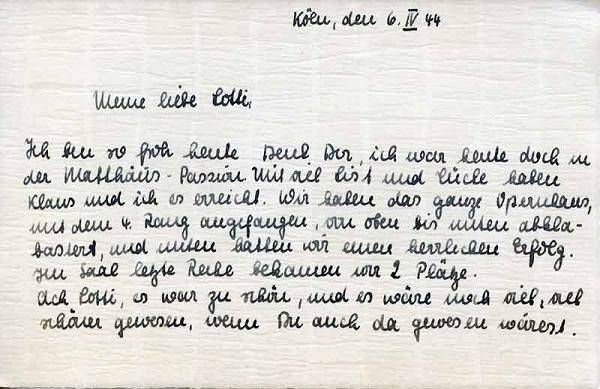 Köln, den 6. IV 44
Meine liebe Lotti,
Ich bin so froh heute Denk Dir, ich war heute doch in
der Matthäus-Passion. Mit viel List und Tücke haben
Klaus und ich es erreicht. Wir haben das ganze Opernhaus,
mit dem 4. Rang angefangen, von oben bis unten abkla-
bastert, und unten hatten wir einen herrlichen Erfolg.
Im Saal letzte Reihe bekamen wir 2 Plätze.
Ach Lotti, es war zu schön, und es wäre noch viel, viel
schöner gewesen, wenn Du auch da gewesen wärest.